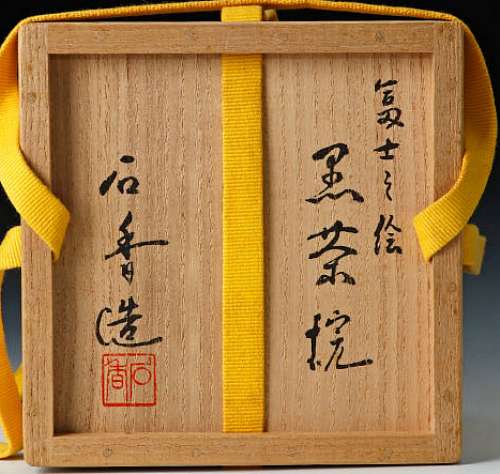 富士之絵
黒茶碗
石香造
石香